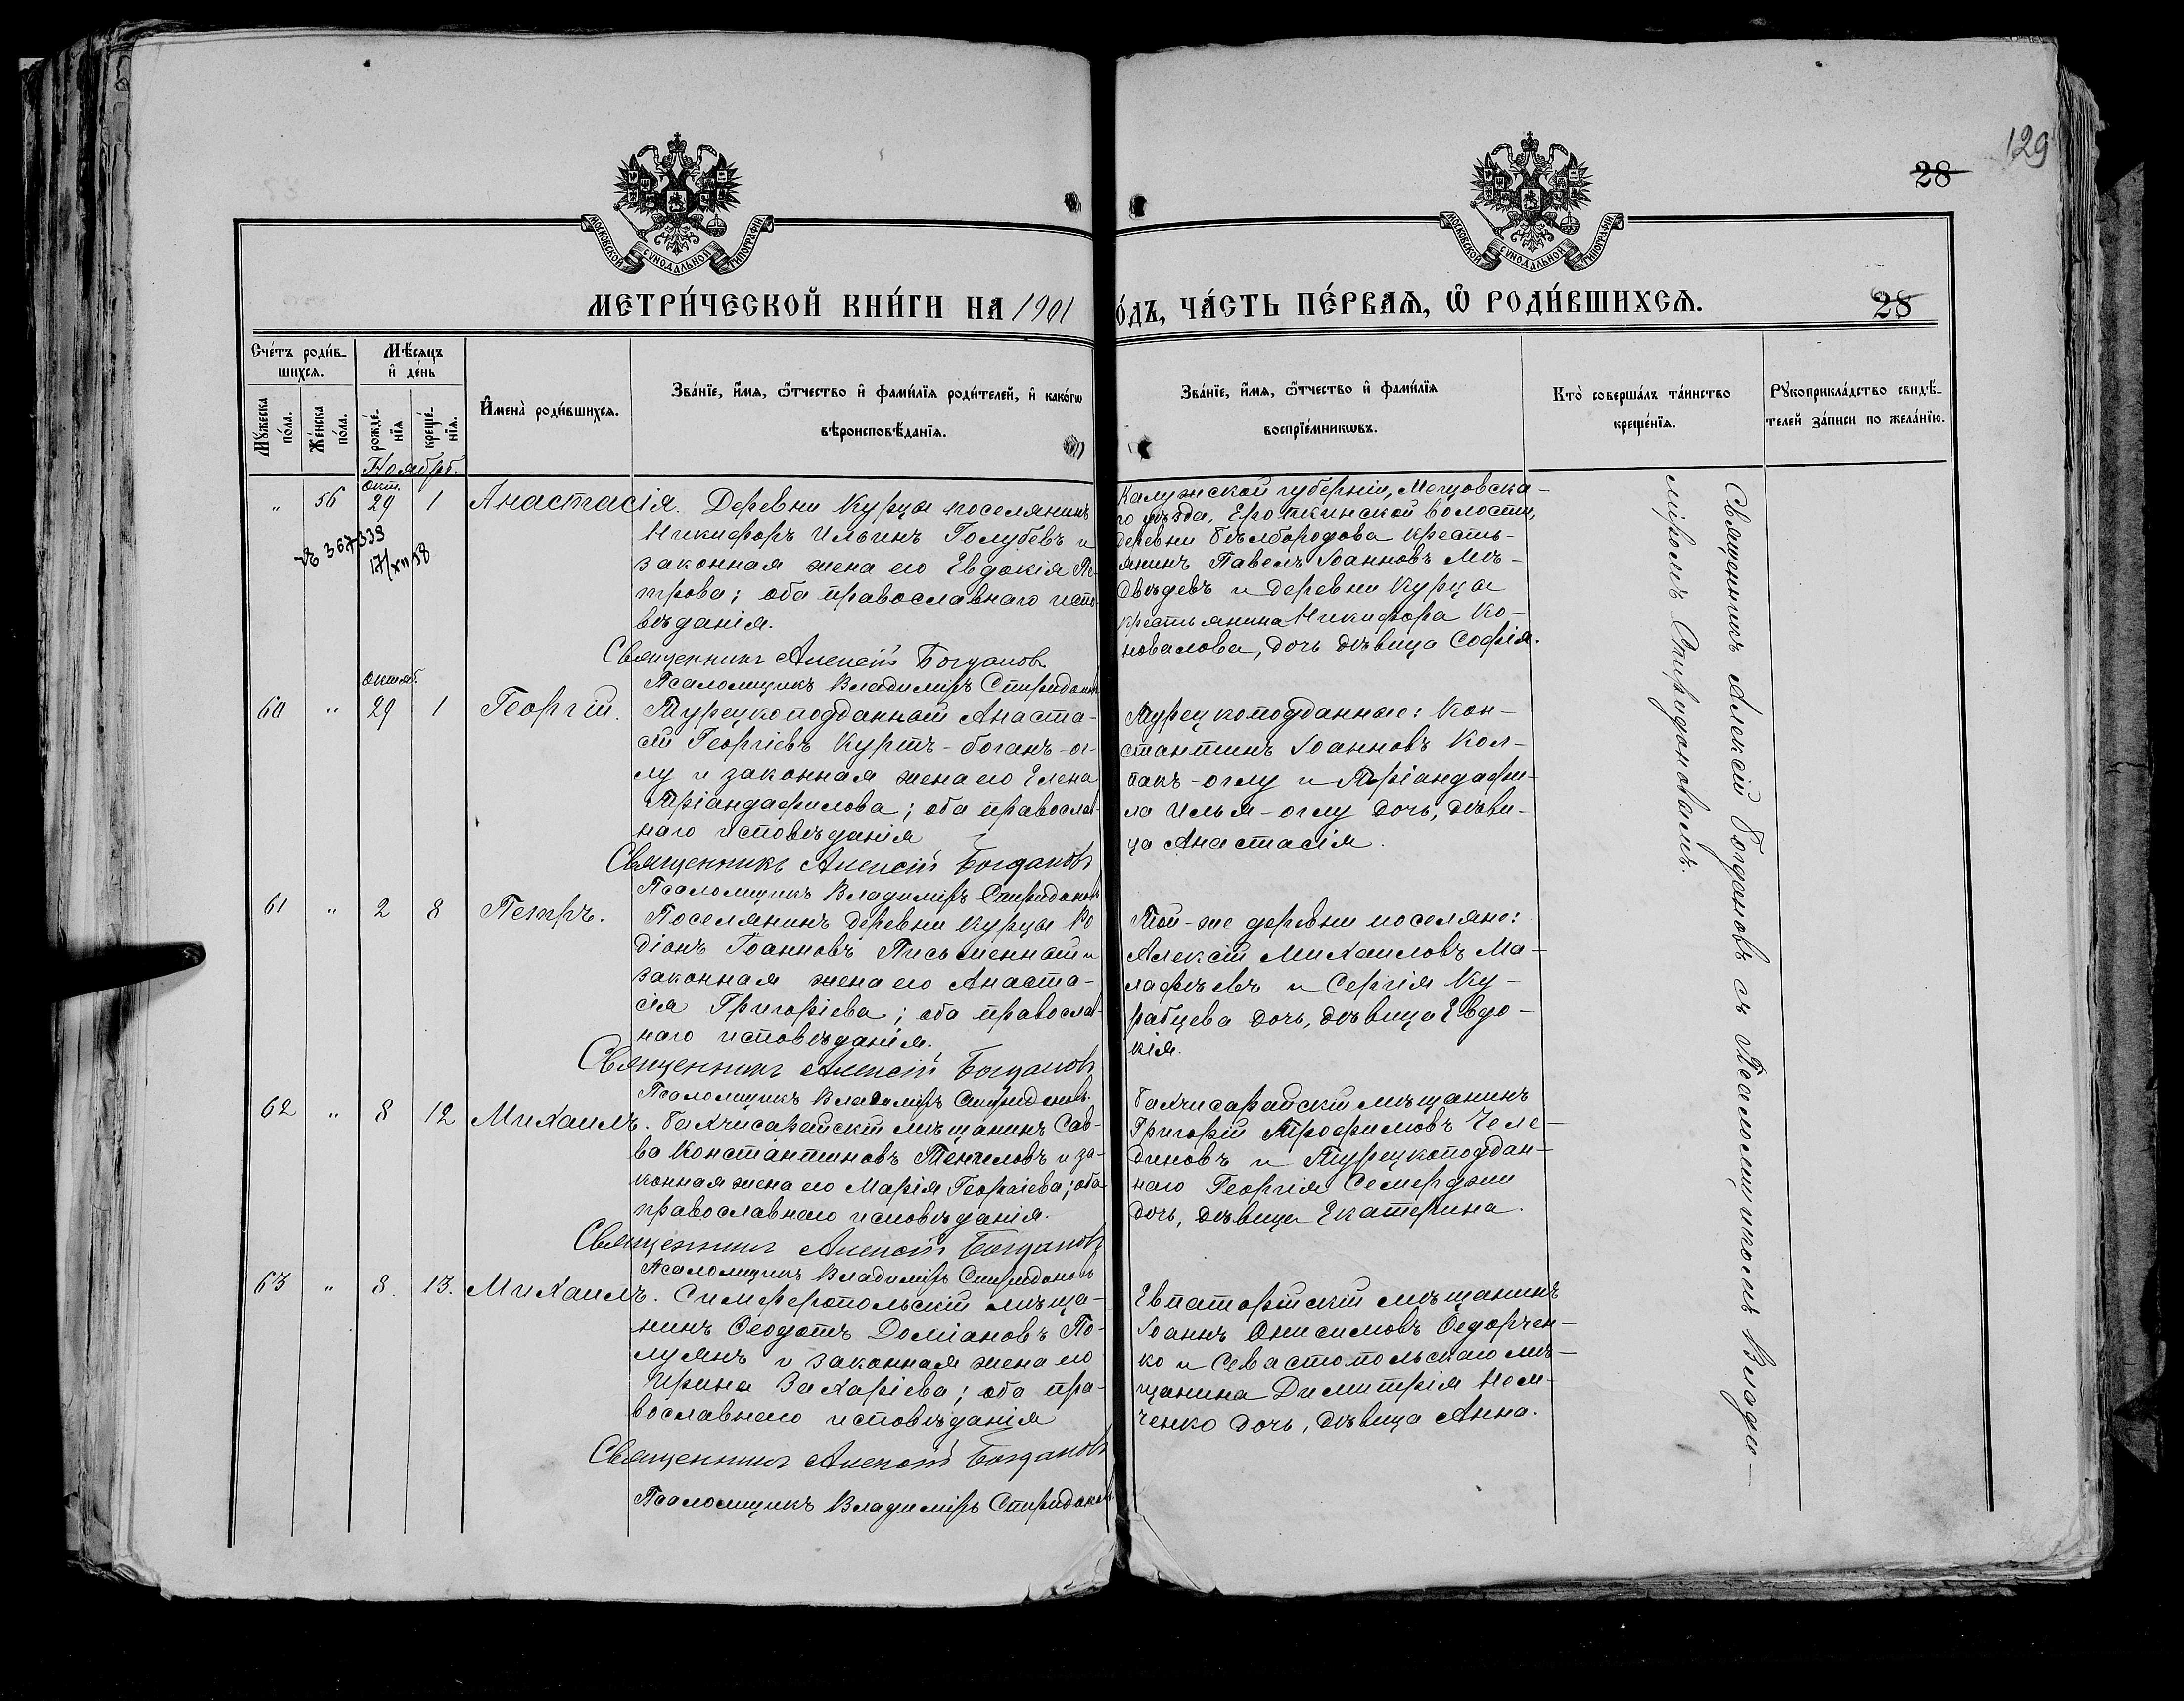 129
28
МОСКОВСКОЙ СѴНОДАЛЬНОЙ ТИПОГРАФІИ
МОСКОВСКОЙ СѴНОДАЛЬНОЙ ТИПОГРАФІИ
МЕТРИ́ЧЕСКОЙ КНИ́ГИ НА 1901
О́ДЪ, ЧА́СТЬ ПЕ́РВАѦ, Ѡ҆ РОДИ́ВШИХСѦ.
28
Сче́тъ роди́в-
шихся.
Мѣ́сяцъ
и҆ де́нь
Мꙋ́жеска
по́ла.
Же́нска
по́ла.
рожде́-
нїя
креще́-
нїя.
И҆мена̀ роди́вшихся.
Зва́нїе, и҆́мя, ѻ҆́тчество и҆ фами́лїя роди́телей, и҆ како́гѡ
вѣроисповѣ́данїя.
Зва́нїе, и҆́мя, ѻ҆́тчество и҆ фами́лїя
воспрїе́мникѡвъ.
Кто̀ соверша́лъ та́инство
креще́нїя.
Рꙋкоприкла́дство свидѣ́-
телей за́писи по жела́нїю.
Ноябрь.
окт.
" 56 29 1 Анастасія. Деревни Курцы поселянинъ
Никифоръ Ильинъ Голубевъ и
законная жена его Евдокія Пе-
трова; оба православнаго испо-
вѣданія.
№ 367339
17/XII 58
Священникъ Алексій Богданов
Псаломщикъ Владиміръ Спиридонов
Калужской губерніи, Мещовска-
го уѣзда, Еропкинской волости,
деревни Бѣлбородова кресть-
янинъ Павелъ Іоанновъ Ме-
двѣдевъ и деревни Курцы
крестьянина Никифора Ко-
новалова, дочь дѣвица Софія.
октяб.
60 " 29 1 Георгій. Турецкоподданный Анаста-
сій Георгіевъ Куртъ-боганъ-ог-
лу и законная жена его Елена
Тріандафилова; оба православ-
наго исповѣданія
Священникъ Алексій Богданов
Псаломщикъ Владиміръ Спиридонов
Турецкоподданные: Кон-
стантинъ Іоанновъ Кол-
пакъ-оглу и Тріандафи-
ла Илья-оглу дочь, дѣви-
ца Анастасія.
61 " 2 8 Петръ. Поселянинъ деревни Курцы Ро
діонъ Іоанновъ Письменный и
законная жена его Анаста-
сія Григоріева; оба православ-
наго исповѣданія.
Священникъ Алексій Богданов
Псаломщикъ Владиміръ Спиридонов
Той-же деревни поселяне:
Алексій Михаиловъ Ма-
лафѣевъ и Сергія Ку-
рабцева дочь, дѣвица Евдо-
кія.
62 " 8 12 Михаилъ. Бахчисарайскій мѣщанинъ Сав-
ва Константиновъ Тенгеловъ и за-
конная жена его Марія Георгіева; оба
православнаго исповѣданія.
Священникъ Алексій Богданов
Псаломщикъ Владиміръ Спиридонов
Бахчисарайскій мѣщанинъ
Григорій Трофимовъ Челе-
диновъ и Турецкоподдан-
наго Георгія Семерджи
дочь, дѣвица Екатерина.
63 " 8. 13. Михаилъ. Симферопольскій мѣща-
нинъ Ѳеодотъ Доміановъ По-
луянъ и законная жена его
Ирина Захаріева; оба пра-
вославнаго исповѣданія
Священникъ Алексій Богданов
Псаломщикъ Владиміръ Спиридонов
Евпаторійскій мѣщанинъ
Іоаннъ Онисимовъ Ѳедорчен-
ко и Севастопольскаго мѣ-
щанина Димитрія Нем-
ченко дочь, дѣвица Анна.
Священникъ Алексій Богдановъ съ Псаломщикомъ Влади-
міромъ Спиридоновымъ.